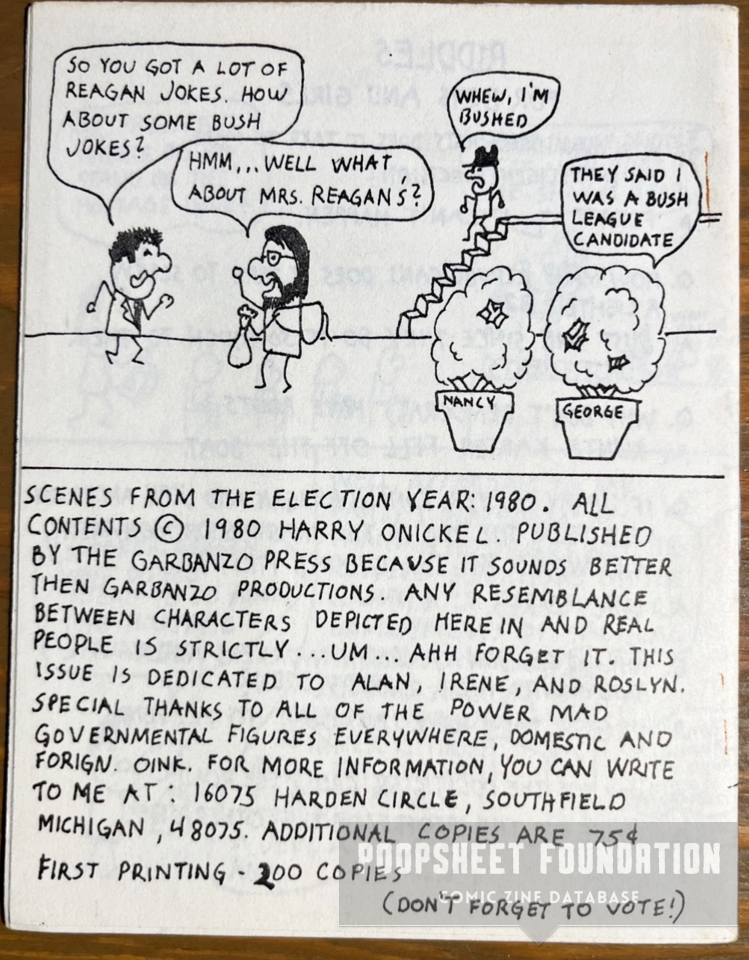 SO YOU GOT A LOT OF
REAGAN JOKES. HOW
ABOUT SOME BUSH
JOKES?
HMM... WELL WHAT
ABOUT MRS. REAGANS?
WHEW, I'M
BUSHED
THEY SAID I
WAS A BUSH
LEAGUE
CANDIDATE
NANCY
GEORGE
SCENES FROM THE ELECTION YEAR: 1980. ALL
CONTENTS © 1980 HARRY ONICKEL. PUBLISHED
BY THE GARBANZO PRESS BECAUSE IT SOUNDS BETTER
THEN GARBANZO PRODUCTIONS. ANY RESEMBLANCE
BETWEEN CHARACTERS DEPICTED HERE IN AND REAL
PEOPLE IS STRICTLY...UM... AHH FORGET IT. THIS
ISSUE IS DEDICATED TO ALAN, IRENE, AND ROSLYN.
SPECIAL THANKS TO ALL OF THE POWER MAD
GOVERNMENTAL FIGURES EVERYWHERE, DOMESTIC AND
FORIGN. OINK. FOR MORE INFORMATION, YOU CAN WRITE
TO ME AT: 16075 HARDEN CIRCLE, SOUTHFIELD
MICHIGAN, 48075. ADDITIONAL COPIES ARE 75¢
FIRST PRINTING - 200 COPIES
(DON'T FORGET TO VOTE!)
POOPSHEET FOUNDATION
COMIC ZINE DATABASE